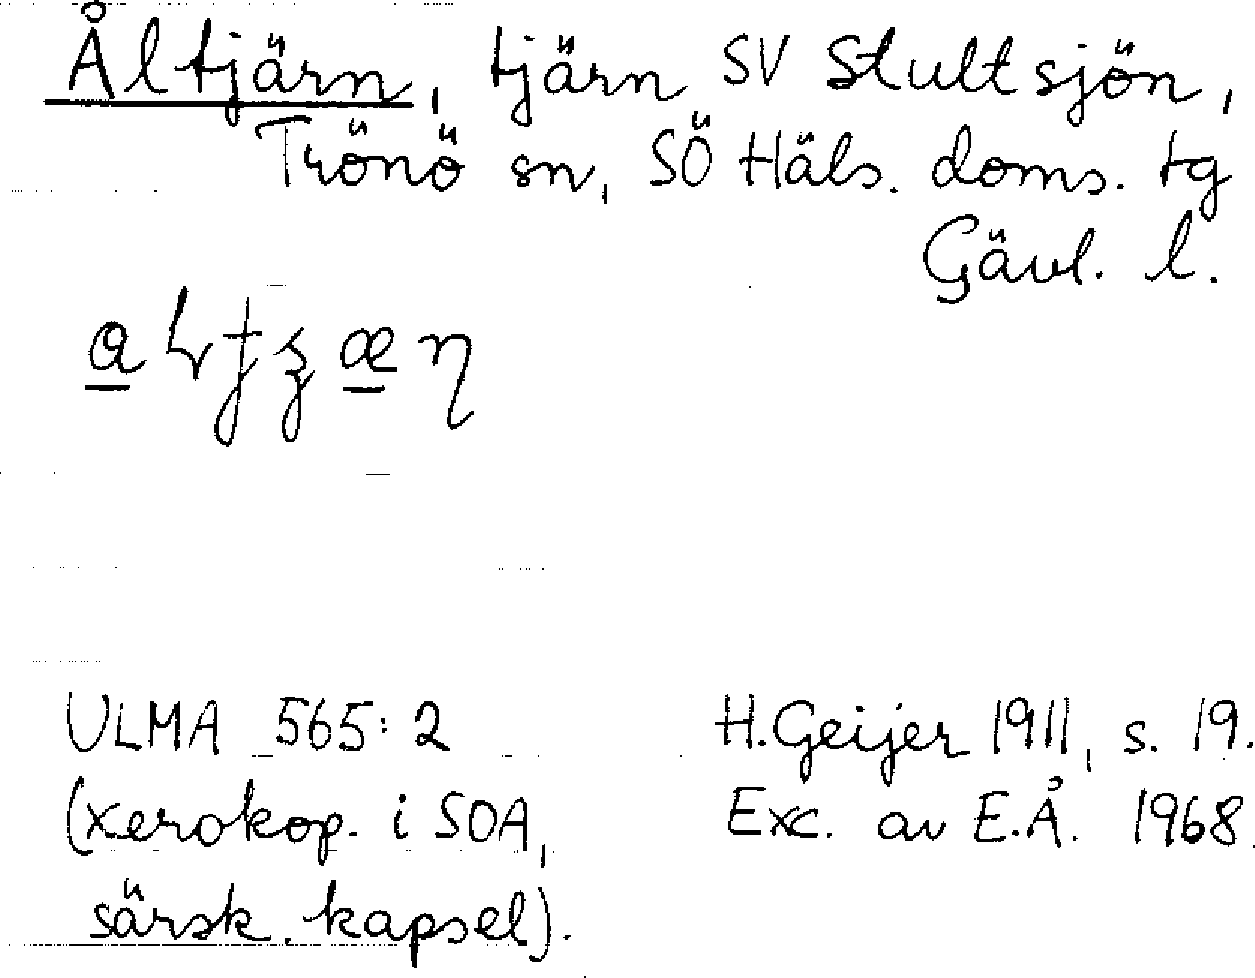 Åltjärn, tjärn SV Stultsjön,
Trönö sn, SÖ Häls. doms. tg
Gävl. l.
ULMA 565:2
(xerokop. i SOA,
särsk. kapsel).
H.Geijer 1911, s. 19.
Exc. av E.Å. 1968.